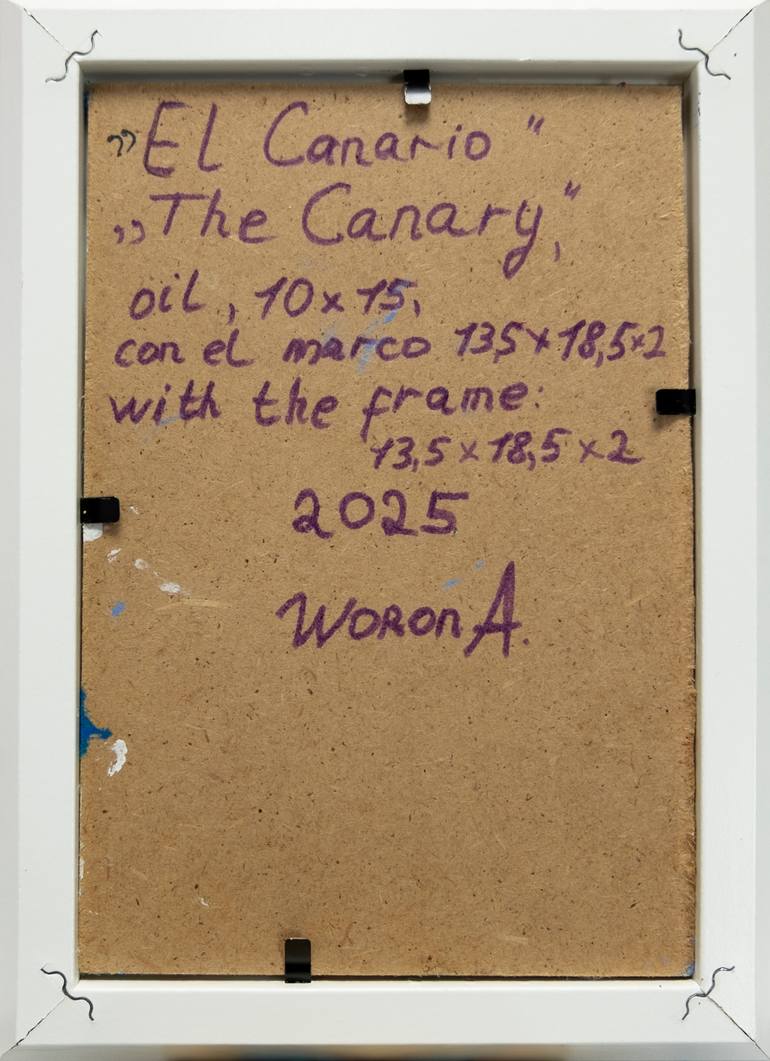 „El Canario"
„The Canary,"
oil, 10x15,
con el marco 13,5x18,5x2
with the frame:
13,5x18,5x2
2025
Woron A.